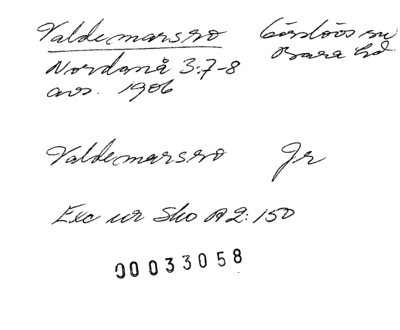 Valdemarsro Görslövs sn
Nordanå 3:7-8 Bara hd
avs. 1906
Valdemarsro Jr
Exc ur Sko A2:150
00033058